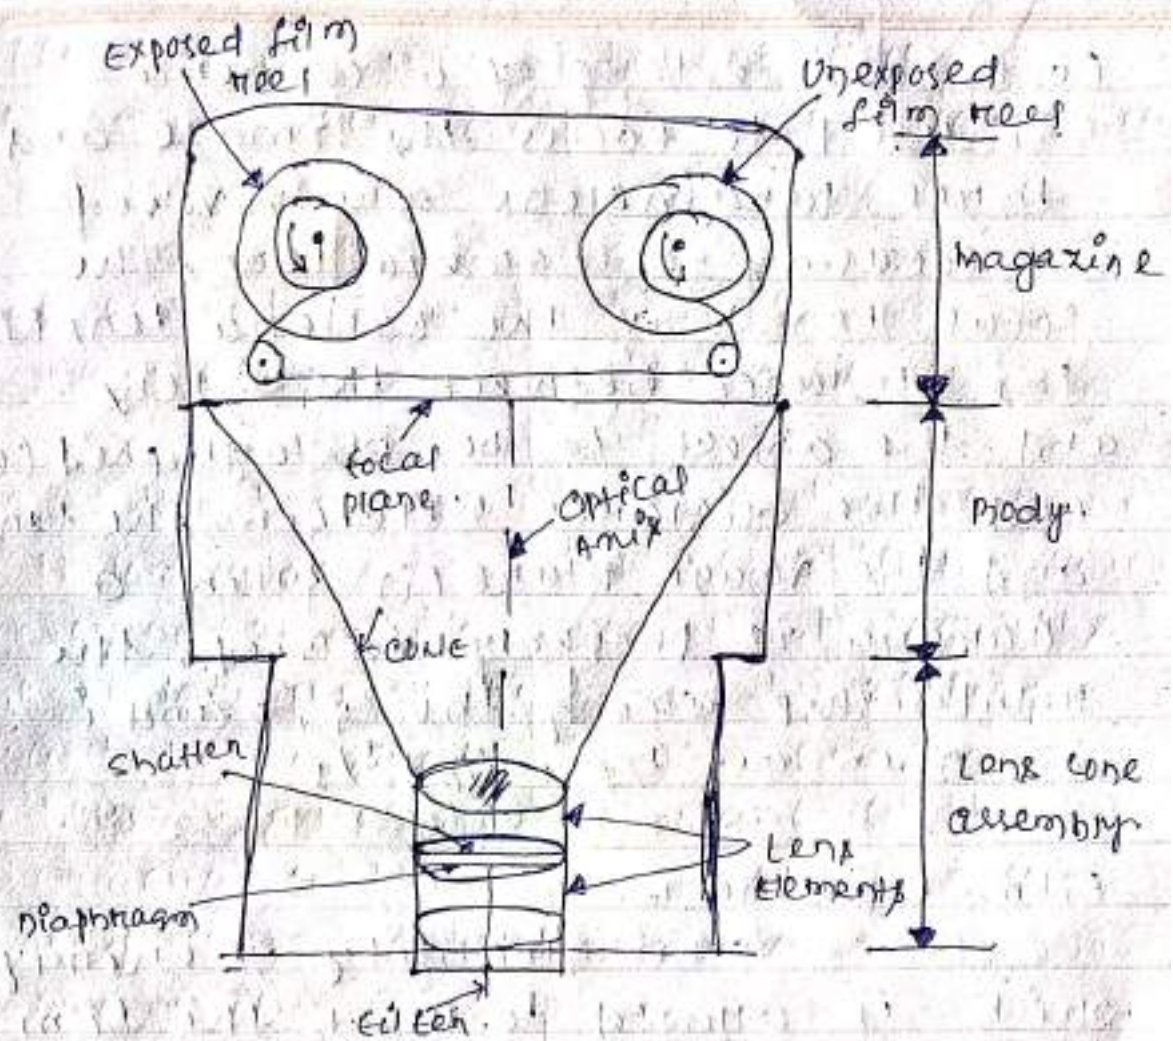 Exposed film
reel
Unexposed
film reel
Magazine
focal
plane.
Optical
Axix
Body.
CONE
Shutter
Lens cone
assembly
Lens
Elements
Diaphragm
Filter.